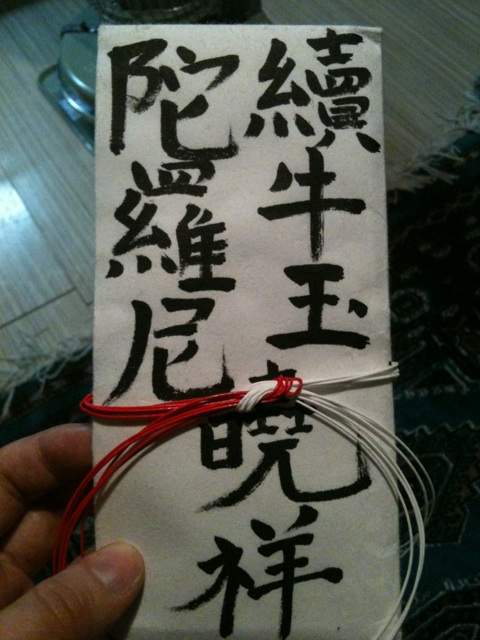 續牛玉曉祥
陀羅尼